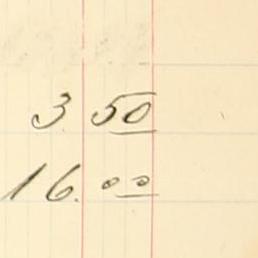 3 50
16.00